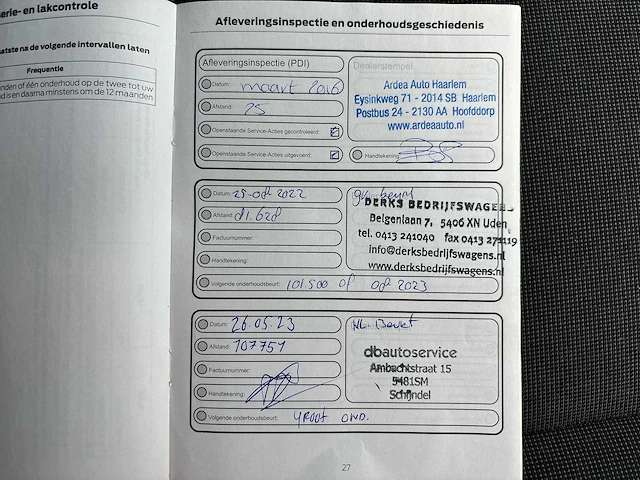 erie- en lakcontrole
aatste na de volgende intervallen laten
Frequentie
nden of één onderhoud op de twee tot uw
d is en daarna minstens om de 12 maanden
Afleveringsinspectie en onderhoudsgeschiedenis
Afleveringsinspectie (PDI)
Datum: maart 2016
Afstand: 25
Openstaande Service-Acties gecontroleerd:
Openstaande Service-Acties uitgevoerd:
Dealerstempel
Ardea Auto Haarlem
Eysinkweg 71 - 2014 SB Haarlem
Postbus 24 - 2130 AA Hoofddorp
www.ardeaauto.nl
Handtekening:
Datum: 25-08-2022
Afstand:
Factuurnummer:
Handtekening:
Volgende onderhoudsbeurt: 101.500 of 08 2023
DERKS BEDRIJFSWAGENS
Belgenlaan 7, 5406 XN Uden
tel. 0413 241040 fax 0413 271119
info@derksbedrijfswagens.nl
www.derksbedrijfswagens.nl
Datum: 26.05.23
Afstand: 107751
Factuurnummer:
Handtekening:
Volgende onderhoudsbeurt: groot ond.
dbautoservice
Ambachtstraat 15
5481SM
Schijndel
27